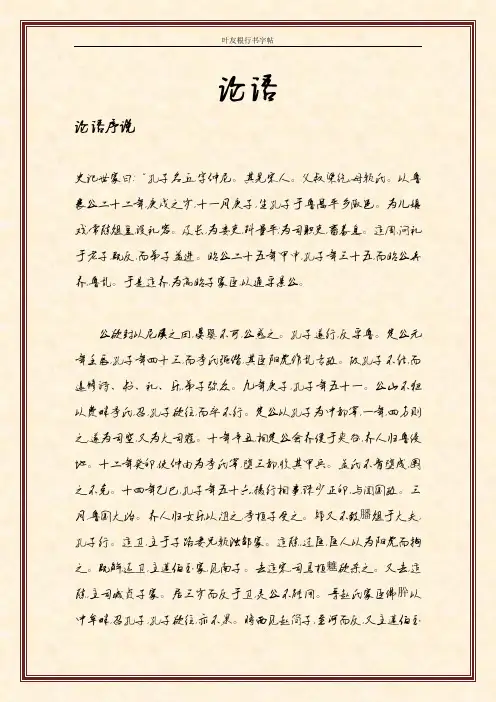 叶友根行书字帖
论语
论语序说
史记世家曰:“孔子名丘,字仲尼。其先宋人。父叔梁纥,母颜氏。以鲁
襄公二十二年,庚戌之岁,十一月庚子,生孔子于鲁昌平乡陬邑。为儿嬉
戏,常陈俎豆,设礼容。及长,为委吏,料量平;为司职吏,畜蕃息。适周,问礼
于老子,既反,而弟子益进。昭公二十五年甲申,孔子年三十五,而昭公奔
齐,鲁乱。于是适齐,为高昭子家臣,以通乎景公。
公欲封以尼溪之田,晏婴不可,公惑之。孔子遂行,反乎鲁。定公元
年壬辰,孔子年四十三,而季氏强僭,其臣阳虎作乱专政。故孔子不仕,而
退修诗、书、礼、乐,弟子弥众。九年庚子,孔子年五十一。公山不狃
以费畔季氏,召,孔子欲往,而卒不行。定公以孔子为中都宰,一年,四方则
之,遂为司空,又为大司寇。十年辛丑,相定公会齐侯于夹谷,齐人归鲁侵
地。十二年癸卯,使仲由为季氏宰,堕三都,收其甲兵。孟氏不肯堕成,围
之不克。十四年乙巳,孔子年五十六,摄行相事,诛少正卯,与闻国政。三
月,鲁国大治。齐人归女乐以沮之,季桓子受之。郊又不致膰俎于大夫,
孔子行。适卫,主于子路妻兄颜浊邹家。适陈,过匡,匡人以为阳虎而拘
之。既解,还卫,主蘧伯玉家,见南子。去适宋,司马桓魋欲杀之。又去,适
陈,主司城贞子家。居三岁而反于卫,灵公不能用。晋赵氏家臣佛肸以
中牟畔,召孔子,孔子欲往,亦不果。将西见赵简子,至河而反,又主蘧伯玉